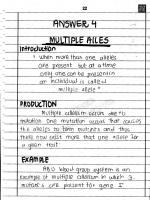 22
ANSWER 4
MULTIPLE ALLELES
Introduction
" when more than one alleles
are present but at a time
only one can be present in
an individual is called
multiple allele "
PRODUCTION
Multiple allelism occurs due to
mutation. One mutation occurs that causes
the alleles to form mutants and thus
there now exist more than one allele for
a given trait.
EXAMPLE
ABO blood group system is an
example of multiple allelism in which 3
are present for gene I